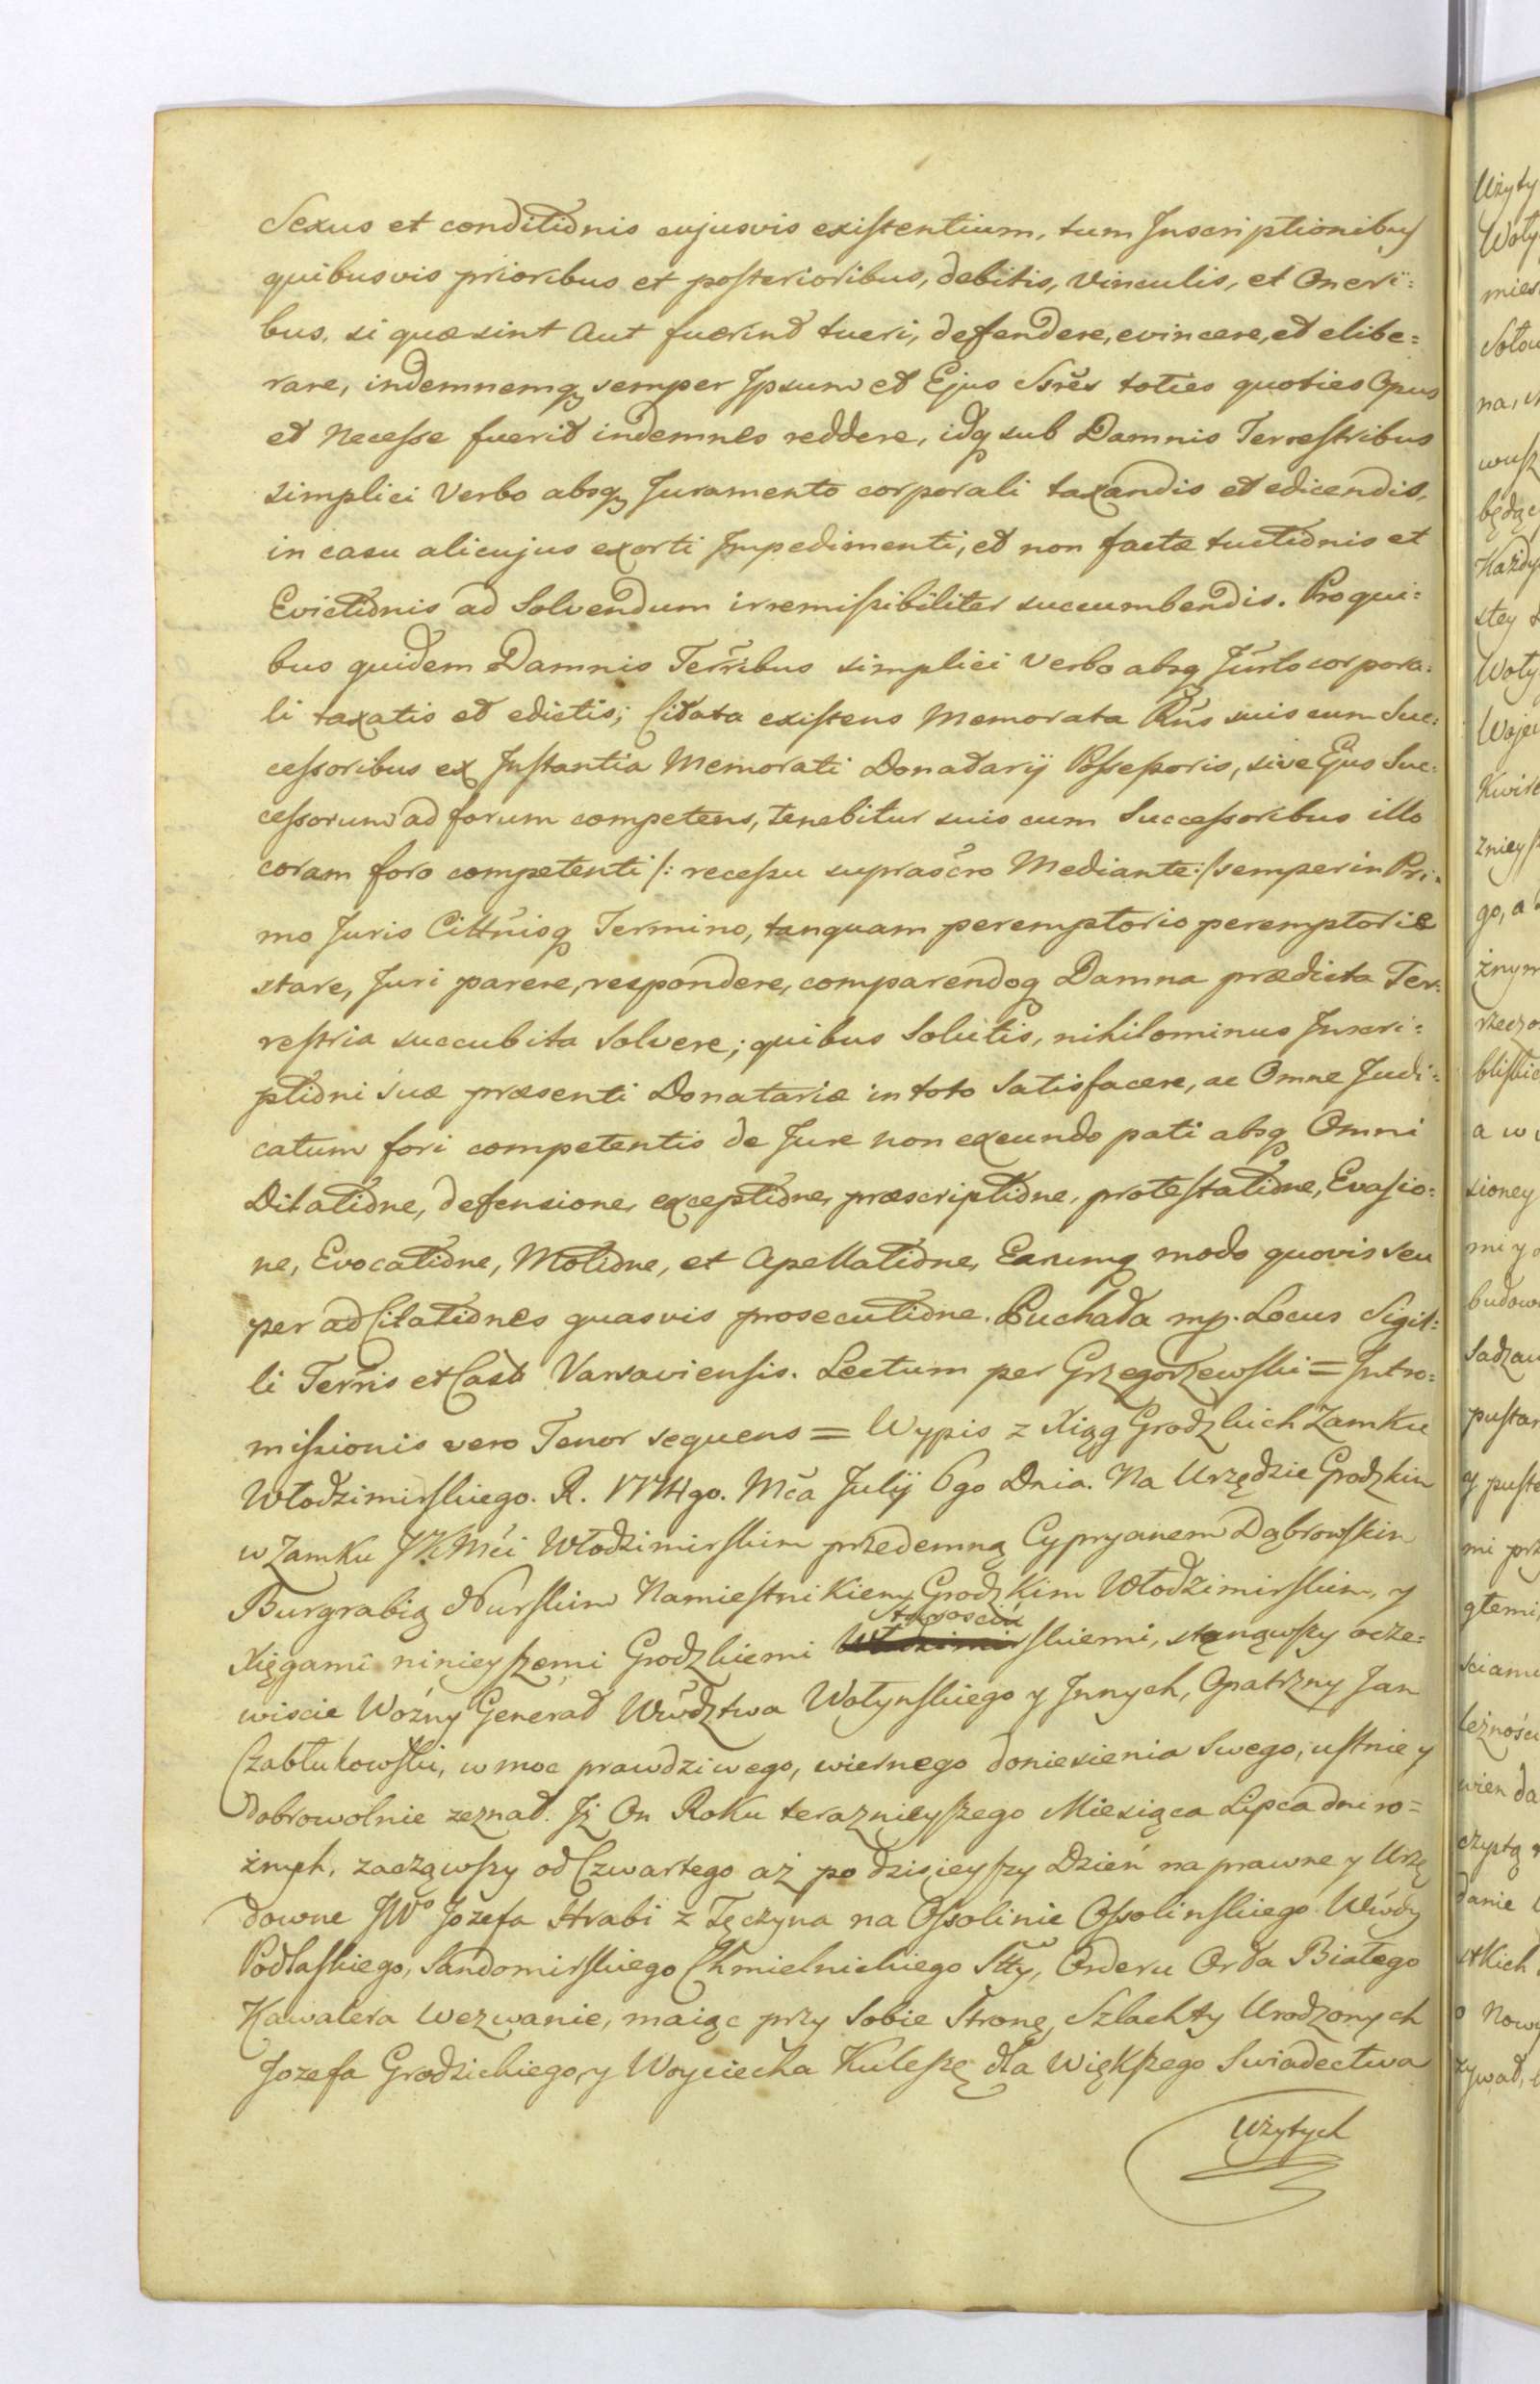 Sexus et conditiõnis cujusvis existentium, tum Inscriptionibus
quibusvis prioribus et posterioribus, debitis, Vinculis, et Oneri:
bus, si quæ sint aut fuerint tueri, defendere, evincere, et elibe:
rare, indemnemq semper Ipsum et Ejus Ssrẽs toties quoties Opus
et Necesse fuerit indemnes reddere, idq sub Damnis Terrestribus
simplici Verbo absq Juramento corporali taxandis et edicendis,
in casu alicujus exorti Impedimenti, et non factæ tuitiõnis et
Evictiõnis ad Solvendum irremissibiliter succumbendis. Pro qui:
bus quidem Damnis Terr̃ibus simplici Verbo absq Jur̃to corpora:
li taxatis et edictis; Citata existens Memorata Rñs suis cum Suc:
cessoribus ex Instantia Memorati Donatarij Possessoris, sive Ejus Suc:
cessorum ad forum competens, tenebitur suis cum Successoribus illo
coram foro competenti /: recessu suprasc̃ro Mediante :/ semper in Pri:
mo Juris Citt̃nisq Termino, tanquam peremptorio peremptorie
stare, Juri parere, respondere, comparendoq Damna prædicta Ter:
restria succubita Solvere; quibus Solutis, nihilominus Inscri:
ptiõni suæ præsenti Donatariæ in toto Satisfacere, ac Omne Judi:
catum fori competentis de Jure non exeundo pati absq Omni
Dilatiõne, defensione, exceptiõne, præscriptiõne, protestatiõne, Evasio:
ne, Evocatiõne, Motiõne, et Apellatiõne, Earumq modo quovis seu
per ad Citatiõnes quasvis prosecutiõne. Puchała mp. Locus Sigil:
li Terr̃is et Cast̃ Varsaviensis. Lectum per Grzegorzewski = Intro:
missionis vero Tenor sequens = Wypis z Xiąg Grodzkich Zamku
Włodzimirskiego. R. 1774go. Mc̃a Julij 6go Dnia. Na Urzędzie Grodzkim
w Zamku JKMci Włodzimirskim przedemną Cypryanem Dąbrowskim
Burgrabią Nurskim Namiestnikiem Grodzkim Włodzimirskim, y
Xięgami ninieyszemi Grodzkiemi Starościńskiemi, stanąwszy ocze:
wiscie Woźny Generał Wwdztwa Wołynskiego y Innych, Opatrzny Jan
Czabłukowski, w moc prawdziwego, wiernego doniesienia swego, ustnie y
dobrowolnie zeznał. Iż On Roku teraznieyszego Miesiąca Lipca dni ro=
żnych, zacząwszy od Czwartego aż po dzisieyszy Dzień na prawne y Urzę
downe JWo Jozefa Hrabi z Tęczyna na Ossolinie Ossolinskiego Wwdy
Podlaskiego, Sandomirskiego Chmielnickiego Stty, Orderu Orła Białego
Kawalera Wezwanie, maiąc przy Sobie Stronę, Szlachty Urodzonych
Jozefa Grodzickiego, y Woyciecha Kuleszę dla większego Swiadectwa
Użytych